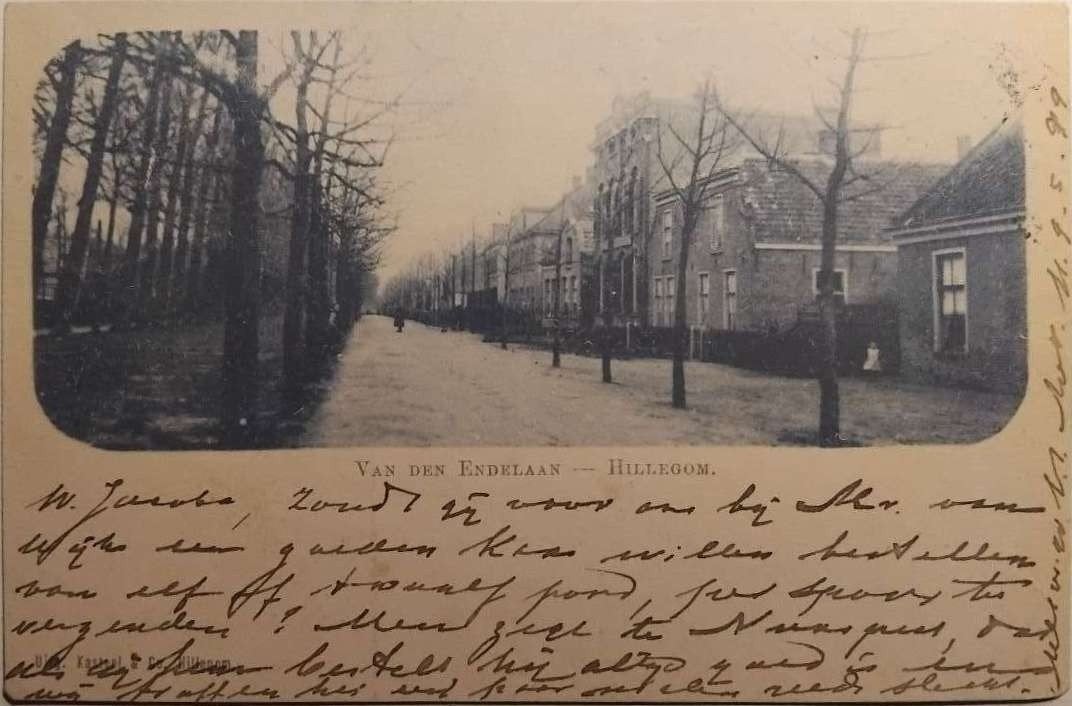 Van den Endelaan — Hillegom.
W. Jacobs, Zoudt gij voor ons bij Mr. van
Wijk een goeden Kaas willen bestellen
van elf of twaalf pond, per spoor te
verzenden? Men zegt te Nunspeet, dat
als gij hem bestelt hij altijd goed is en
wij troffen het een paar malen reeds slecht.
Uitg. Kasteel & Co. Hillegom
9-5-99